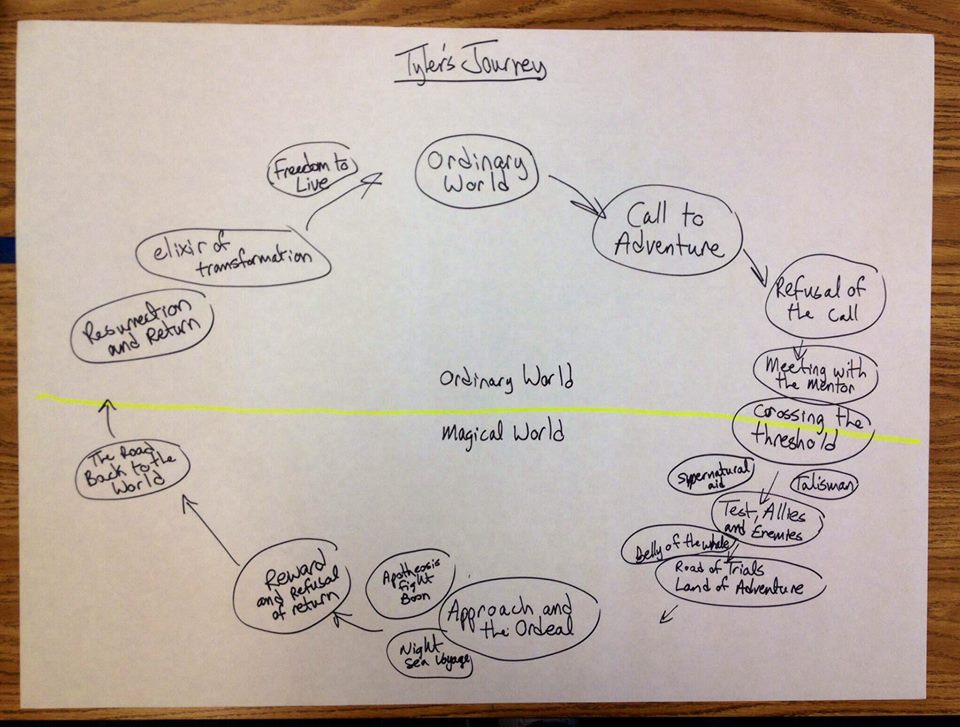 Tyler's Journey
Ordinary
World
Call to
Adventure
Refusal of
the Call
Meeting with
the Mentor
Crossing the
threshold
Supernatural
aid
Talisman
Test, Allies
and Enemies
Belly of the whale
Road of Trials
Land of Adventure
Approach and
the Ordeal
Apotheosis
fight
Boon
Night
Sea Voyage
Reward
and Refusal
of return
The Road
Back to the
World
Resurrection
and Return
elixir of
transformation
Freedom to
Live
Ordinary World
Magical World